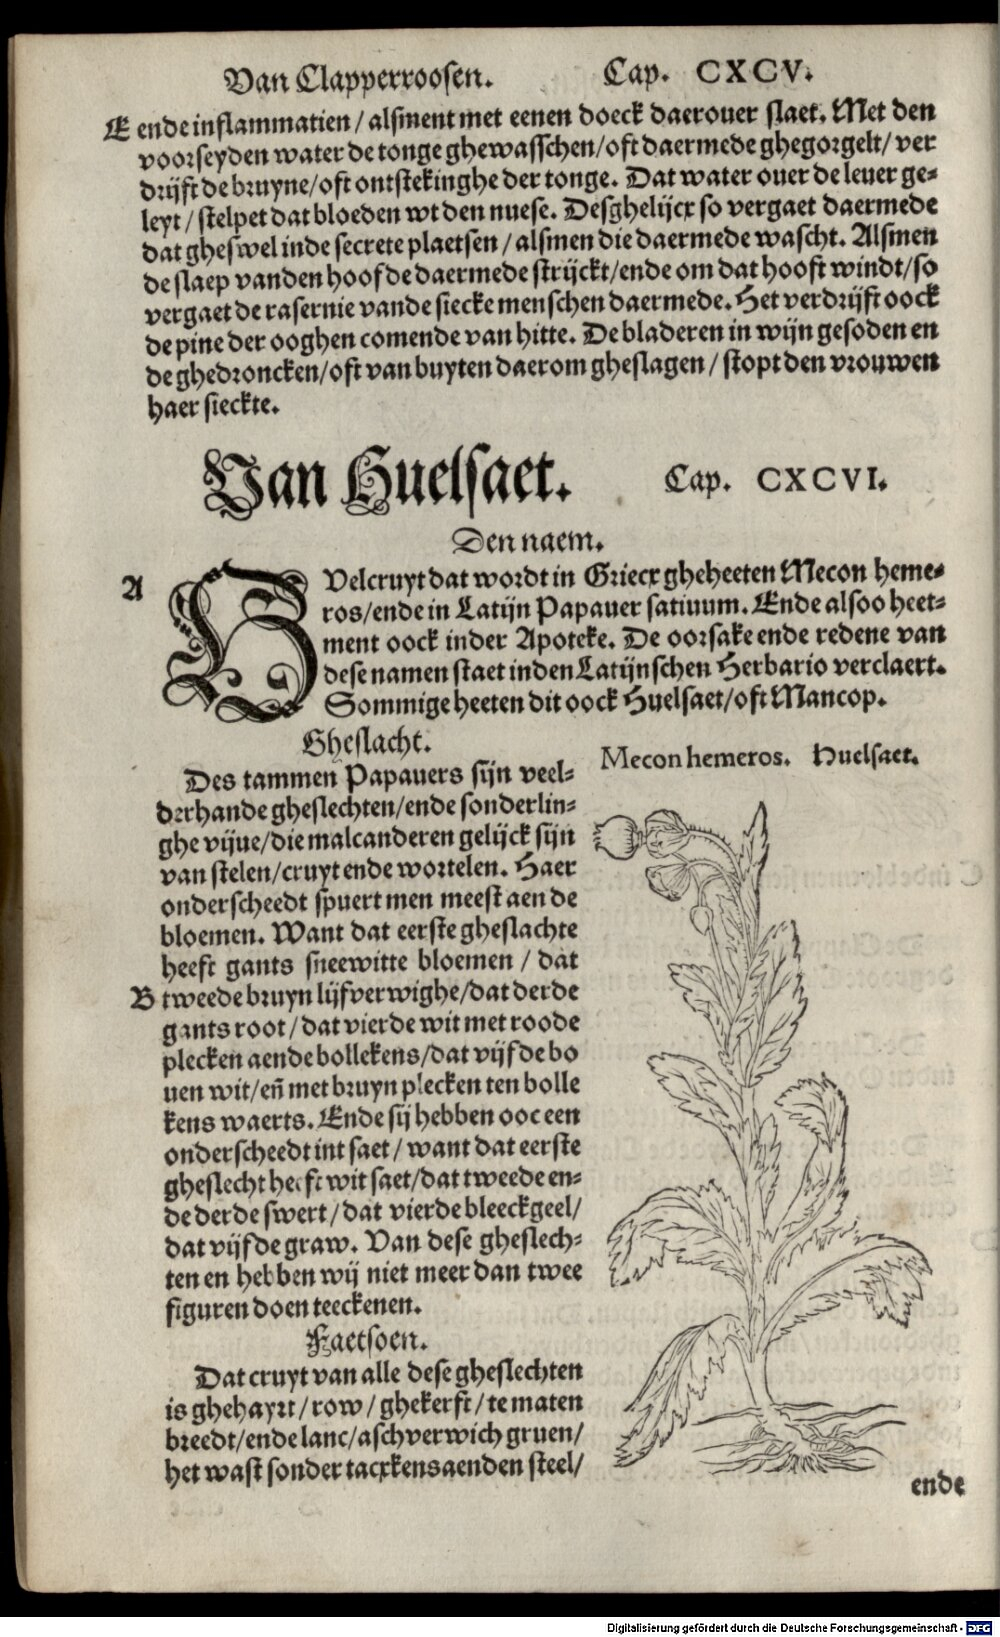 Van Clapperroosen. Cap. CXCV.
E ende inflammatien / alsment met eenen doeck daerouer slaet. Met den
voorseyden water de tonge ghewasschen/oft daermede ghegorgelt/ ver
drijft de bruyne/oft ontstekinghe der tonge. Dat water ouer de leuer ge-
leyt / stelpet dat bloeden wt den nuese. Desghelijcx so vergaet daermede
dat gheswel inde secrete plaetsen / alsmen die daermede wascht. Alsmen
de slaep vanden hoofde daermede strijckt/ende om dat hooft windt/so
vergaet de rasernie vande siecke menschen daermede. Het verdrijft oock
de pine der ooghen comende van hitte. De bladeren in wijn gesoden en
de ghedroncken/oft van buyten daerom gheslagen / stopt den vrouwen
haer sieckte.
Van Huelsaet. Cap. CXCVI.
Den naem.
A HVelcruyt dat wordt in Griecx gheheeten Mecon heme-
ros/ende in Latijn Papauer satiuum. Ende alsoo heet-
ment oock inder Apoteke. De oorsake ende redene van
dese namen staet inden Latijnschen Herbario verclaert.
Sommige heeten dit oock Huelsaet/oft Mancop.
Gheslacht.
Des tammen Papauers sijn veel-
derhande gheslechten/ende sonderlin-
ghe vijue/die malcanderen gelijck sijn
van stelen/cruyt ende wortelen. Haer
onderscheedt spuert men meest aen de
bloemen. Want dat eerste gheslachte
heeft gants sneewitte bloemen / dat
B tweede bruyn lijfverwighe/dat derde
gants root / dat vierde wit met roode
plecken aende bollekens/dat vijfde bo
uen wit/en̄ met bruyn plecken ten bolle
kens waerts. Ende sij hebben ooc een
onderscheedt int saet / want dat eerste
gheslecht heeft wit saet/dat tweede en-
de derde swert / dat vierde bleeckgeel/
dat vijfde graw. Van dese gheslech-
ten en hebben wij niet meer dan twee
figuren doen teeckenen.
Faetsoen.
Dat cruyt van alle dese gheslechten
is ghehayrt / row / ghekerft / te maten
breedt/ende lanc/aschverwich gruen/
het wast sonder tacxkens aenden steel/
Mecon hemeros. Huelsaet.
ende
Digitalisierung gefördert durch die Deutsche Forschungsgemeinschaft - DFG